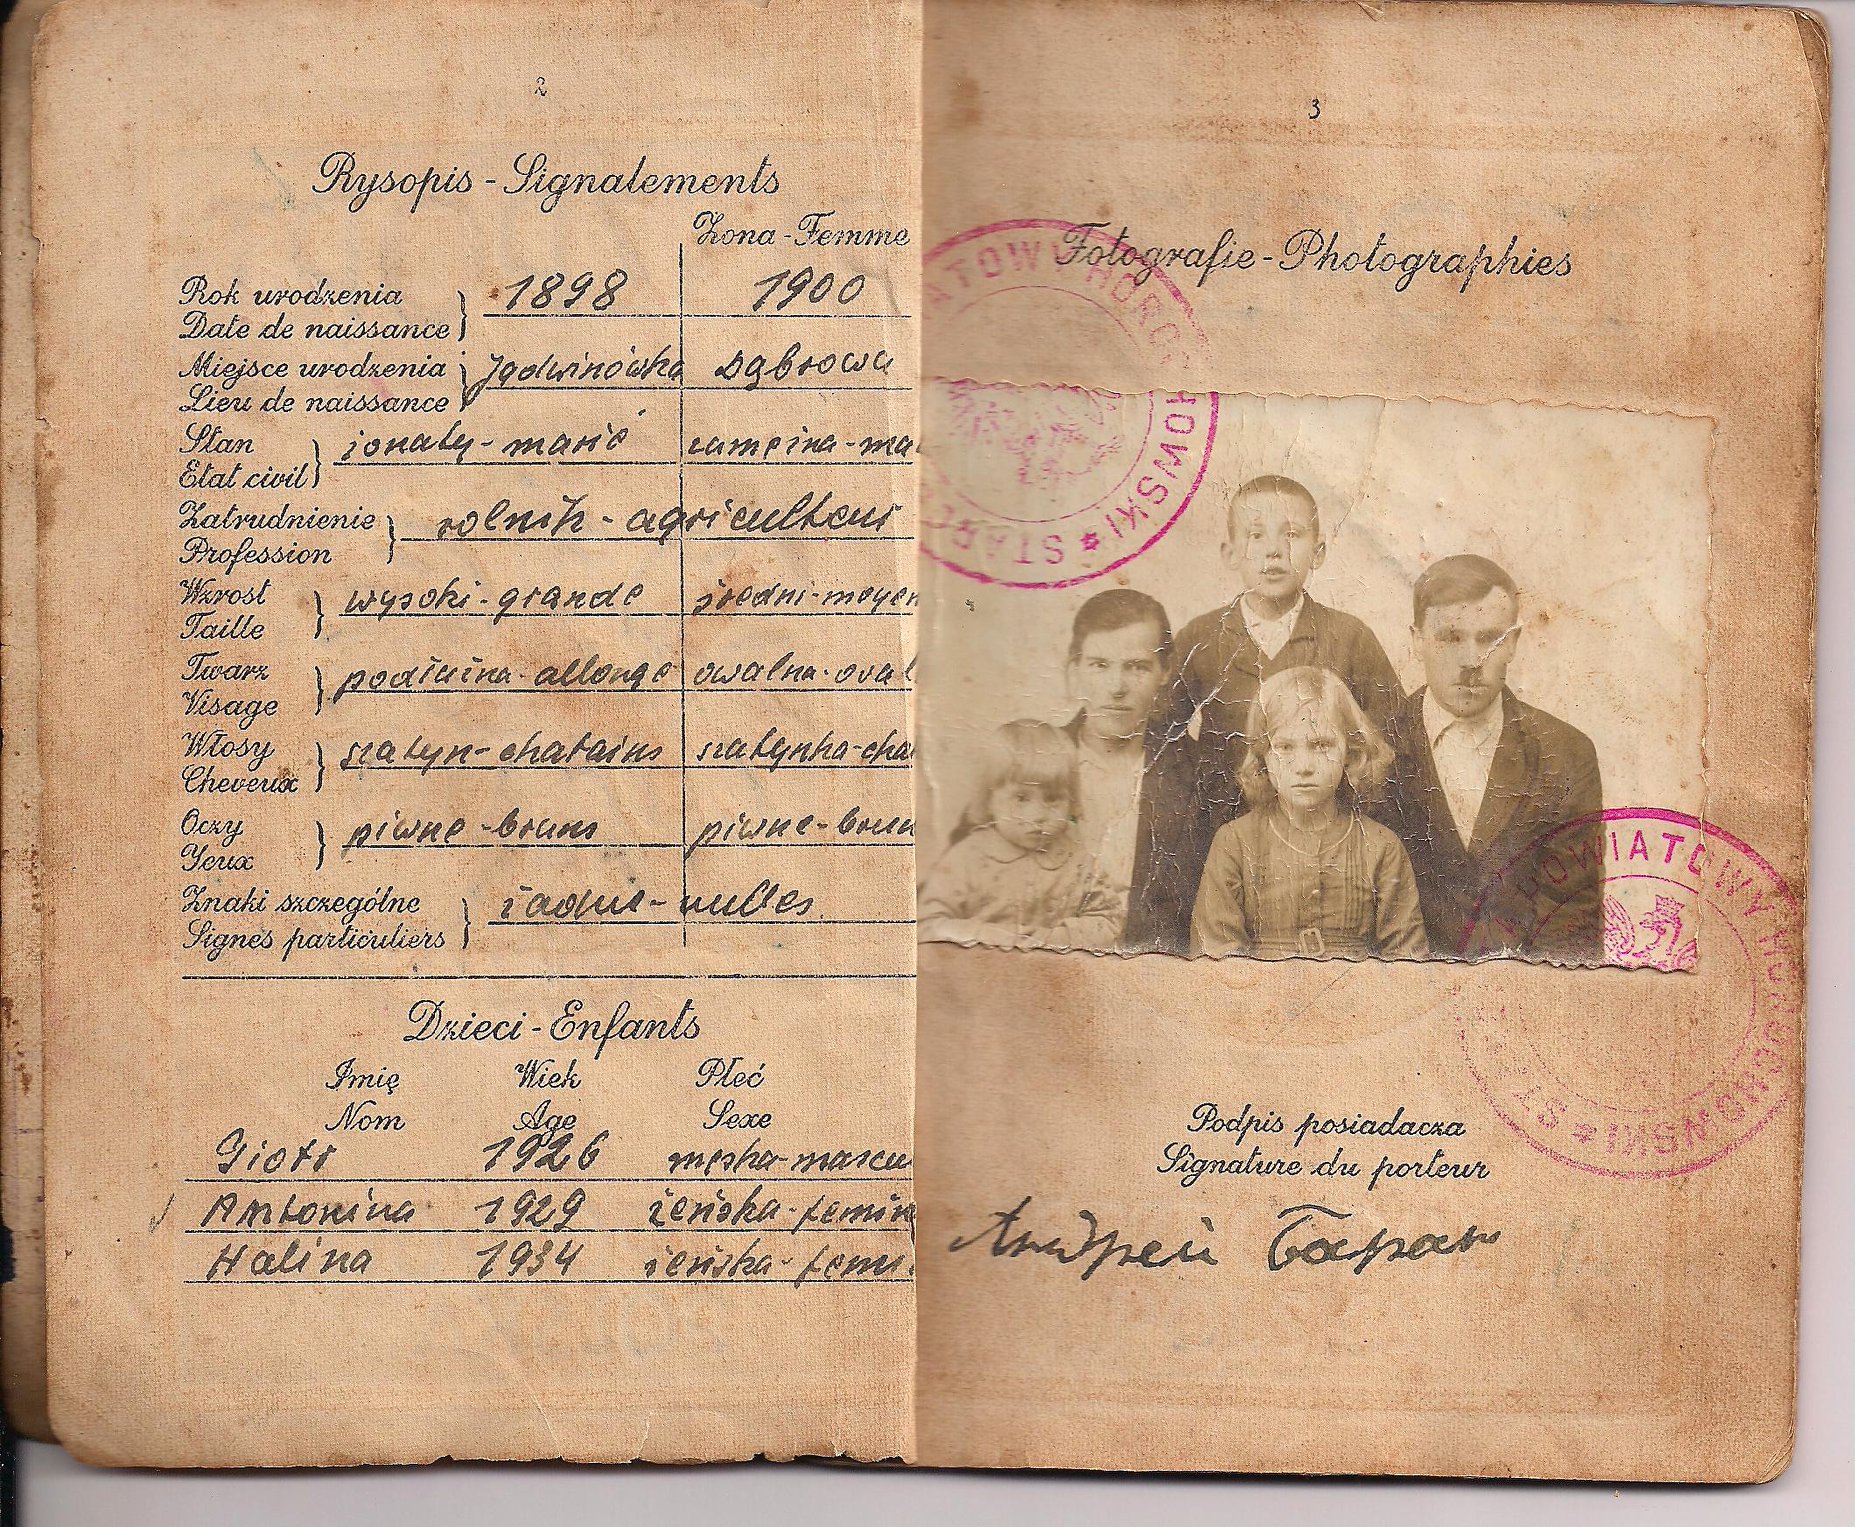 2
Rysopis - Signalements
Żona - Femme
Rok urodzenia
Date de naissance
1898
1900
Miejsce urodzenia
Lieu de naissance
Jadwinówka
Dąbrowa
Stan
Etat civil
żonaty - marié
zamężna - ma
Zatrudnienie
Profession
rolnik - agriculteur
Wzrost
Taille
wysoki - grande
średni - moyen
Twarz
Visage
podłużna - allongé
owalna - oval
Włosy
Cheveux
szatyn - chatains
szatynka - cha
Oczy
Yeux
piwne - bruns
piwne - brun
Znaki szczególne
Signes particuliers
żadne - nulles
Dzieci - Enfants
Imię Wiek Płeć
Nom Age Sexe
Piotr 1926 męska - mascu
Antonina 1929 żeńska - femin
Halina 1934 żeńska - femi
3
Fotografie - Photographies
STAROSTA POWIATOWY HOROCHOWSKI
STAROSTA POWIATOWY HOROCHOWSKI
Podpis posiadacza
Signature du porteur
Андрей